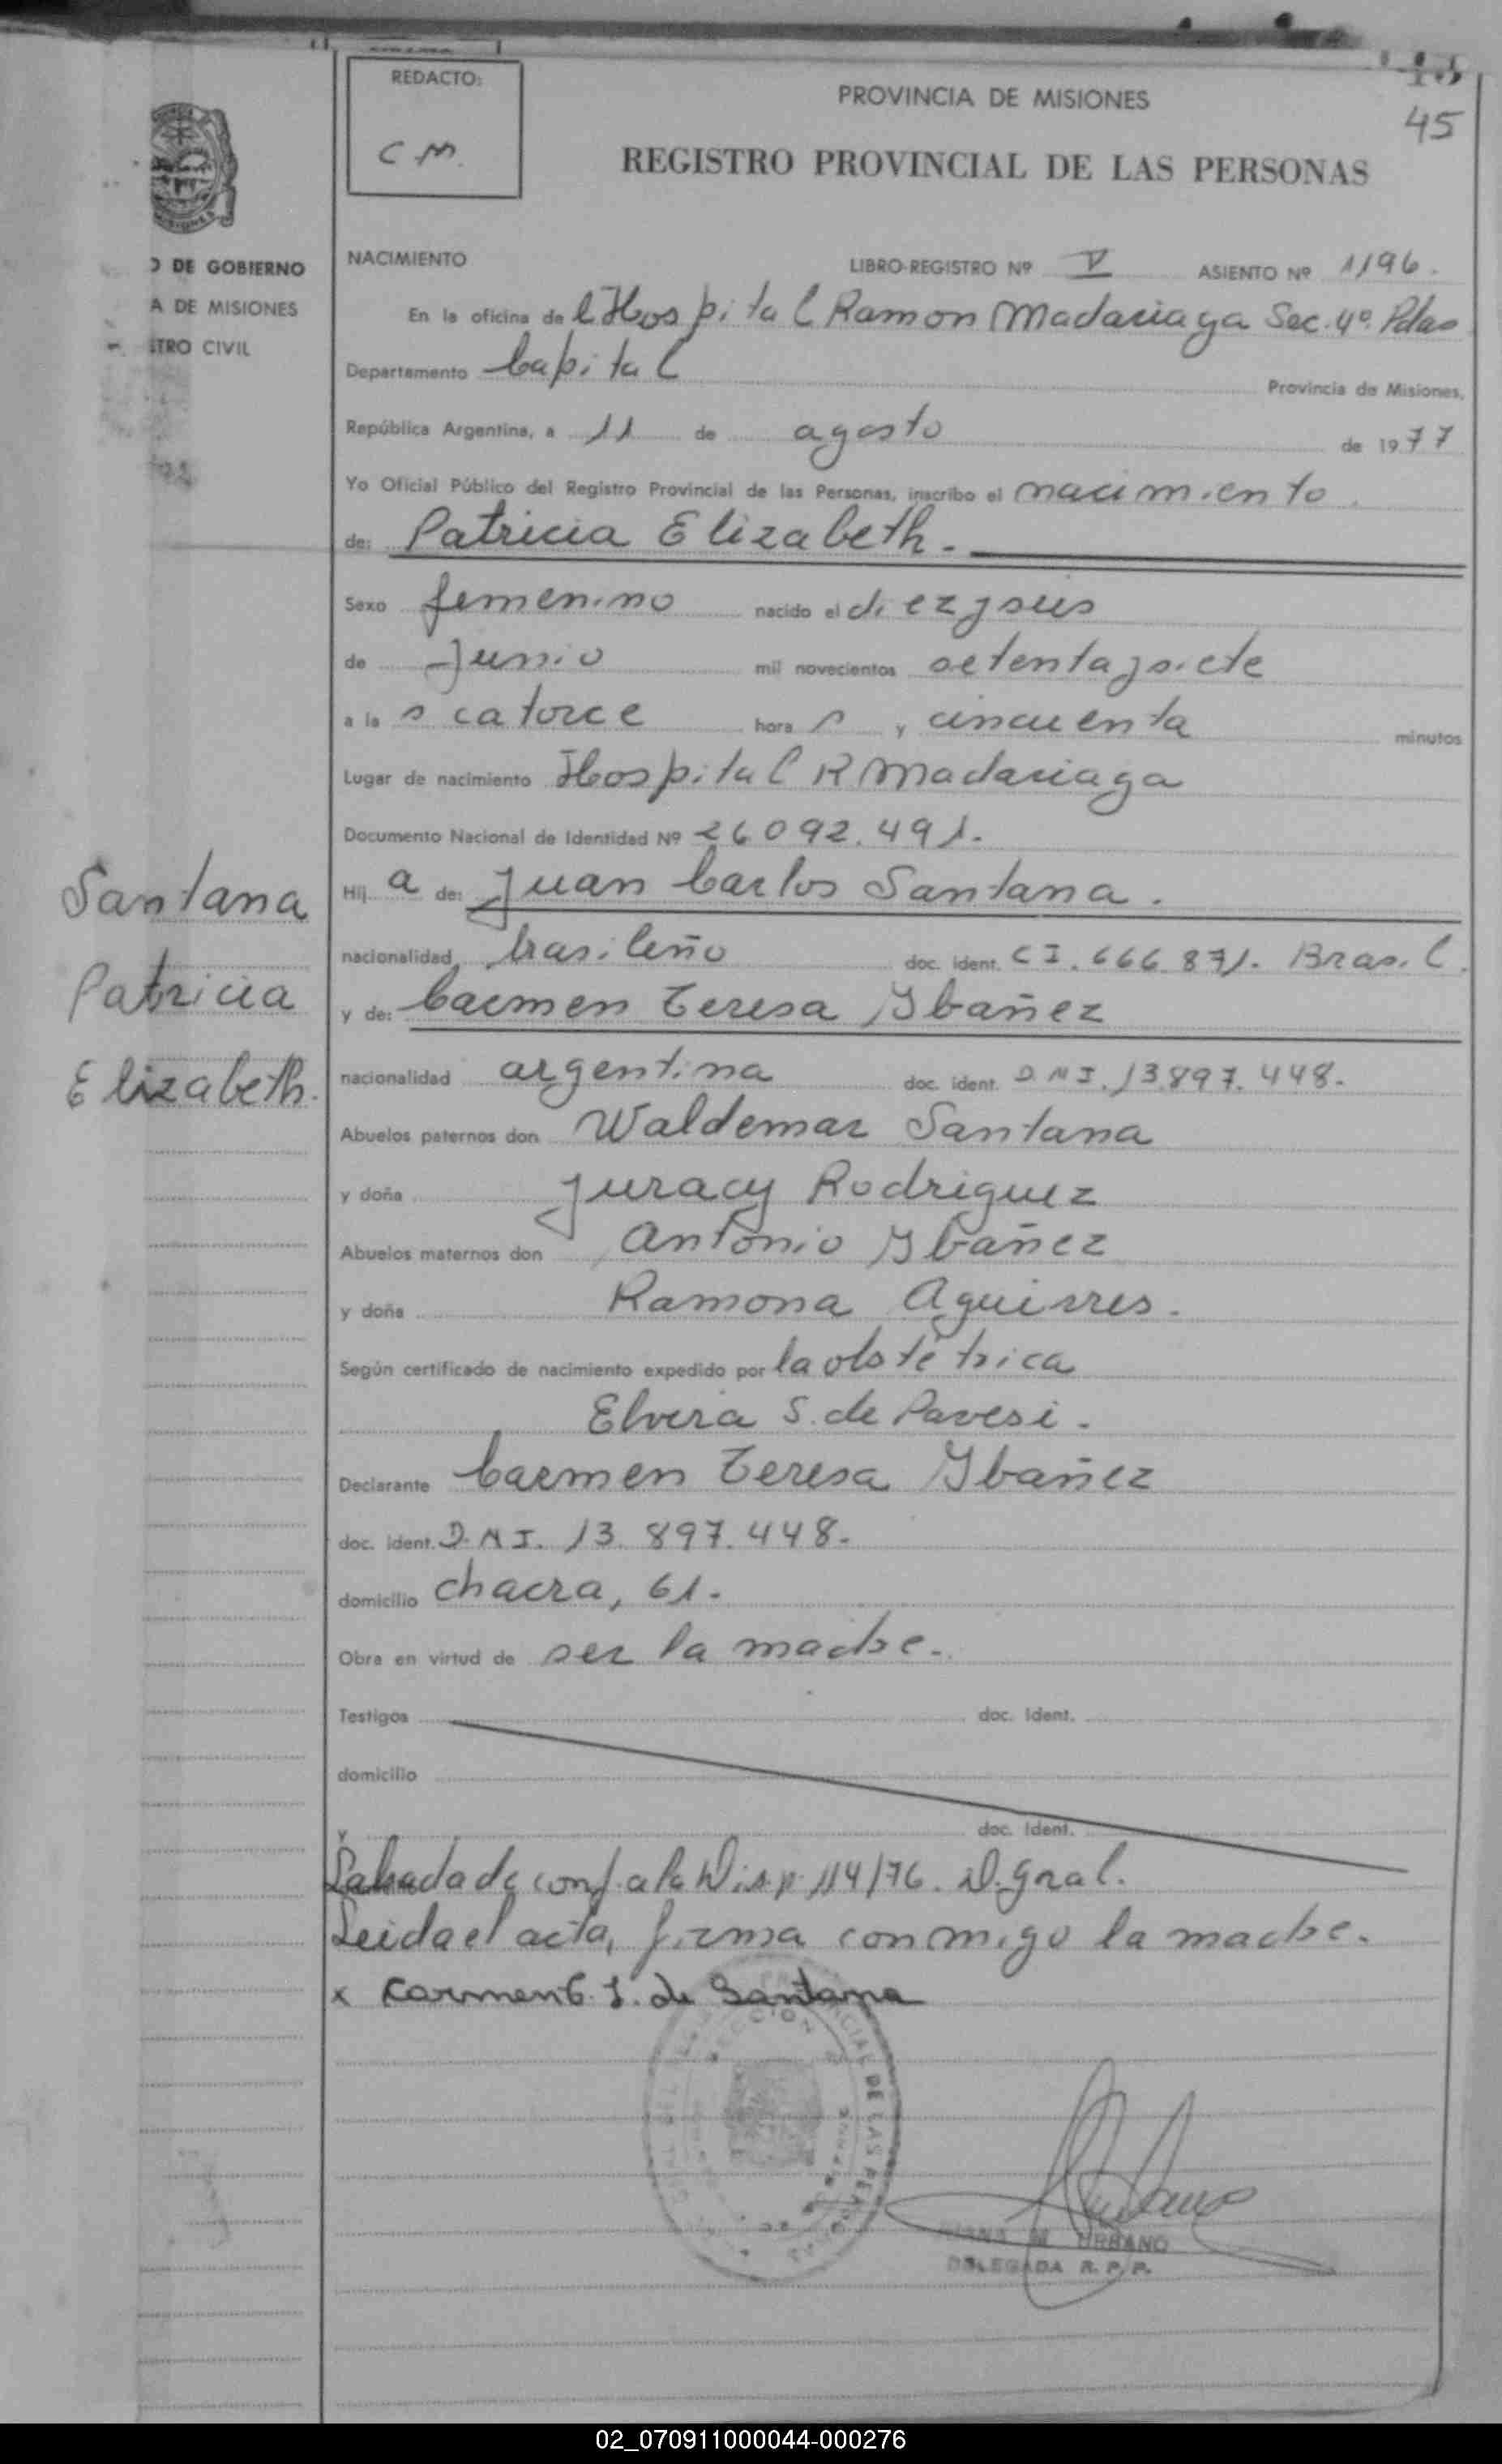 REDACTO:
C M.
PROVINCIA DE MISIONES
45
REGISTRO PROVINCIAL DE LAS PERSONAS
O DE GOBIERNO
A DE MISIONES
STRO CIVIL
NACIMIENTO LIBRO-REGISTRO Nº V ASIENTO Nº 1196.
En la oficina de l Hospital Ramon Madariaga Sec. 4º. Pdas
Departamento Capital Provincia de Misiones,
República Argentina, a 11 de agosto de 1977
Yo Oficial Público del Registro Provincial de las Personas, inscribo el nacimiento.
de: Patricia Elizabeth.-
Sexo femenino nacido el diezyseis
de Junio mil novecientos setentaysiete
a la s catorce hora s y cincuenta minutos
Lugar de nacimiento Hospital R Madariaga
Documento Nacional de Identidad Nº 26092.491.
Hij a de: Juan Carlos Santana.
nacionalidad brasileño doc. ident. CI. 666 871. Brasil.
y de: Carmen Teresa Ybañez
nacionalidad argentina doc. ident. D.N I. 13897.448.
Abuelos paternos don Waldemar Santana
y doña Juracy Rodriguez
Abuelos maternos don Antonio Ybañez
y doña Ramona Aguirres.
Según certificado de nacimiento expedido por la obstétrica
Elvira S. de Pavesi.
Declarante Carmen Teresa Ybañez
doc. ident. D.N I. 13.897.448.
domicilio chacra, 61.
Obra en virtud de ser la madre.
Testigos doc. Ident.
domicilio
y doc. Ident.
conf. a la Disp. 114/76. D. Gral.
Leida el acta, firma conmigo la madre.
x Carmen T. Y. de Santana
DIANA M. URBANO
DELEGADA R. P. P.
Santana
Patricia
Elizabeth.
02_070911000044-000276